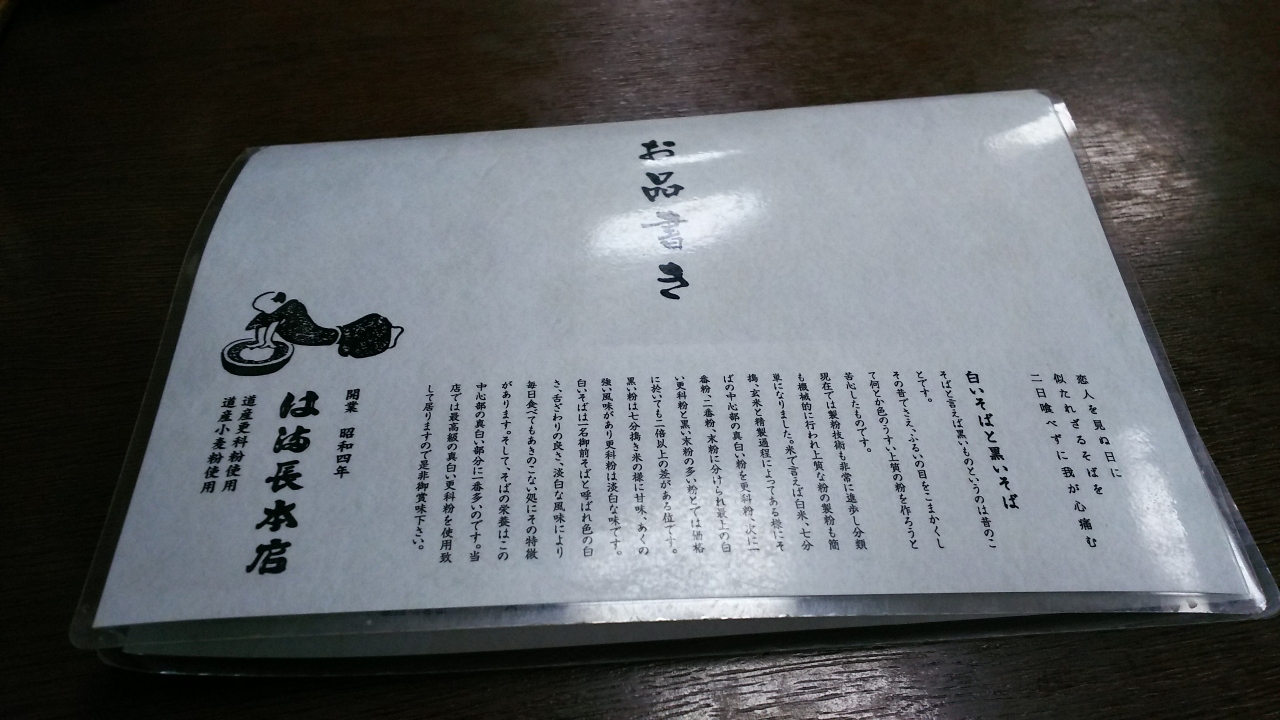 お品書き
恋人を見ぬ日に
似たれざるそばを
二日喰べずに我が心痛む
白いそばと黒いそば
そばと言えば黒いものというのは昔のこ
とです。
その昔でさえ、ふるいの目をこまかくし
て何とか色のうすい上質の粉を作ろうと
苦心したものです。
現在では製粉技術も非常に進歩し分類
も機械的に行われ上質な粉の製粉も簡
単になりました。米で言えば白米、七分
搗、玄米と精製過程によってある様にそ
ばの中心部の真白い粉を更科粉、次に一
番粉、二番粉、末粉に分けられ最上の白
い更科粉と黒い末粉の多い粉とでは価格
に於いても二倍以上の差がある位です。
黒い粉は七分搗き米の様に甘味、あくの
強い風味があり更科粉は淡白な味です。
白いそばは一名御前そばと呼ばれ色の白
さ、舌ざわりの良さ、淡白な風味により
毎日食べてもあきのこない処にその特徴
があります。そして、そばの栄養はこの
中心部の真白い部分に一番多いのです。当
店では最高級の真白い更科粉を使用致
して居りますので是非御賞味下さい。
開業 昭和四年
は満長本店
道産更科粉使用
道産小麦粉使用